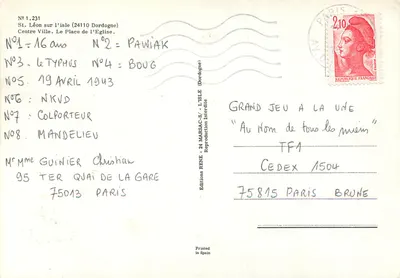 N° 1.231
St. Léon sur l'isle (24110 Dordogne)
Centre Ville. La Place de l'Eglise.
N°1 = 16 ans N°2 = PAWIAK
N°3 = Le TYPHUS N°4 = BOUG
N°5 : 19 AVRIL 1943
N°6 : NKVD
N°7 : COLPORTEUR
N°8 : MANDELIEU
Mr Mme GUINIER Christian
95 TER QUAI DE LA GARE
75013 PARIS
Editions RENE - 24 MARSAC-S/ - L'ISLE (Dordogne)
Reproduction Interdite
Printed
in Spain
PARIS
2,10
GRAND JEU A LA UNE
"Au Nom de tous les miens"
TF1
CEDEX 1504
75815 PARIS BRUNE